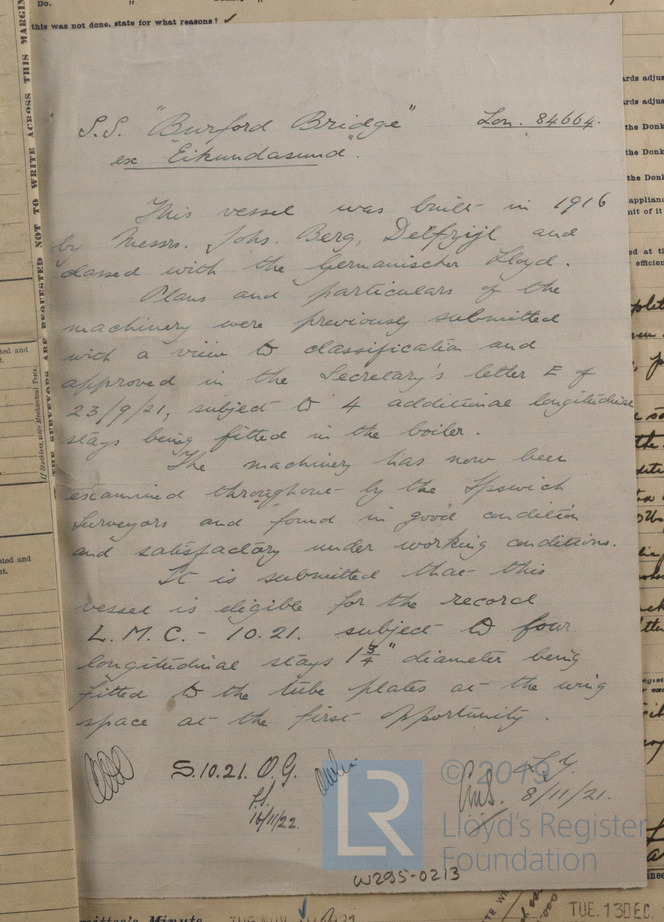 this was not done, state for what reasons?
S.S. "Burford Bridge"    Lon. 84664.
ex "Eikundasund".
This vessel was built in 1916
by Messrs. Johs. Berg, Delfzijl and
classed with the Germanischer Lloyd.
Plans and particulars of the
machinery were previously submitted
with a view to classification and
approved in the Secretary's letter E of
23/9/21, subject to 4 additional longitudinal
stays being fitted in the boiler.
The machinery has now been
examined throughout by the Ipswich
Surveyors and found in good condition
and satisfactory under working conditions.
It is submitted that this
vessel is eligible for the record
L.M.C. - 10.21. subject to four
longitudinal stays 1 3/4" diameter being
fitted to the tube plates at the wing
space at the first opportunity.
S.10.21. O.G.
16/11/22.
8/11/21.
© 2019
LR
Lloyd's Register
Foundation
W295-0213
TUE. 13 DEC.
THE SURVEYORS ARE REQUESTED NOT TO WRITE ACROSS THIS MARGIN